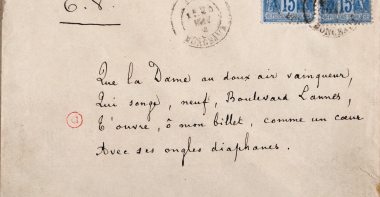 15
15
BORDEAUX
Que la Dame au doux air vainqueur,
Qui songe, neuf, Boulevard Lannes,
T'ouvre, ô mon billet, comme un cœur
Avec ses ongles diaphanes.